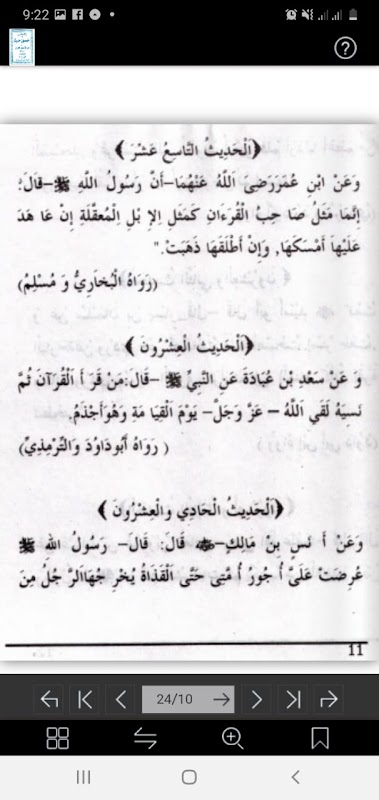 9:22
﴿اَلْحَدِيثُ التَّاسِعُ عَشَرَ﴾
وَعَنْ ابْنِ عُمَرَرَضِىَ اللَّهُ عَنْهُمَا–أَنَّ رَسُولَ اللَّهِ ﷺ–قَالَ؛
إِنَّمَا مَثَلُ صَا حِبُ الْقُرْءَانِ كَمَثَلِ اِلاِ بُلِ الْمُعقَّلَةِ إِنْ عَا هَدَ
عَلَيْهَا أَمْسَكَهَا, وَإِنْ أَطْلَقَهَا ذَهَبَتْ."
(رَوَاهُ الْبُخَارِيُّ وَ مُسْلِمُ)
﴿اَلْحَدِيثُ الْعِشْرُونَ﴾
وَ عَنْ سَعْدِ بْنِ عُبَادَةَ عَنِ النَّبِيِّ ﷺ –قَالَ:مَنْ قَرَ أَ الْقُرْآنَ ثُمَّ
نَسِيَهُ لَقِي اللَّهُ – عَزَّ وَجَلَّ– يَوْمَ الْقِيَا مَةِ وَهُوَأَجْذَمُ,
( رَوَاهُ أَبُودَاوُدَ وَالتِّرْمِذِيِّ)
﴿اَلْحَدِيثُ الْحَادِي وَالْعِشْرُون﴾
وَعَنْ أَ نَسٍ بِنْ مَالِكٍ–رضي الله عنه قَالَ: قَالَ– رَسُولُ الله ﷺ
عُرِضَتْ عَلَيَّ أُ جُورُ أُ مَّتِى حَتَّى الْقَذَاةُ يُخْرِ جُهَاالرَّ جُلُ مِنَ
11
24/10